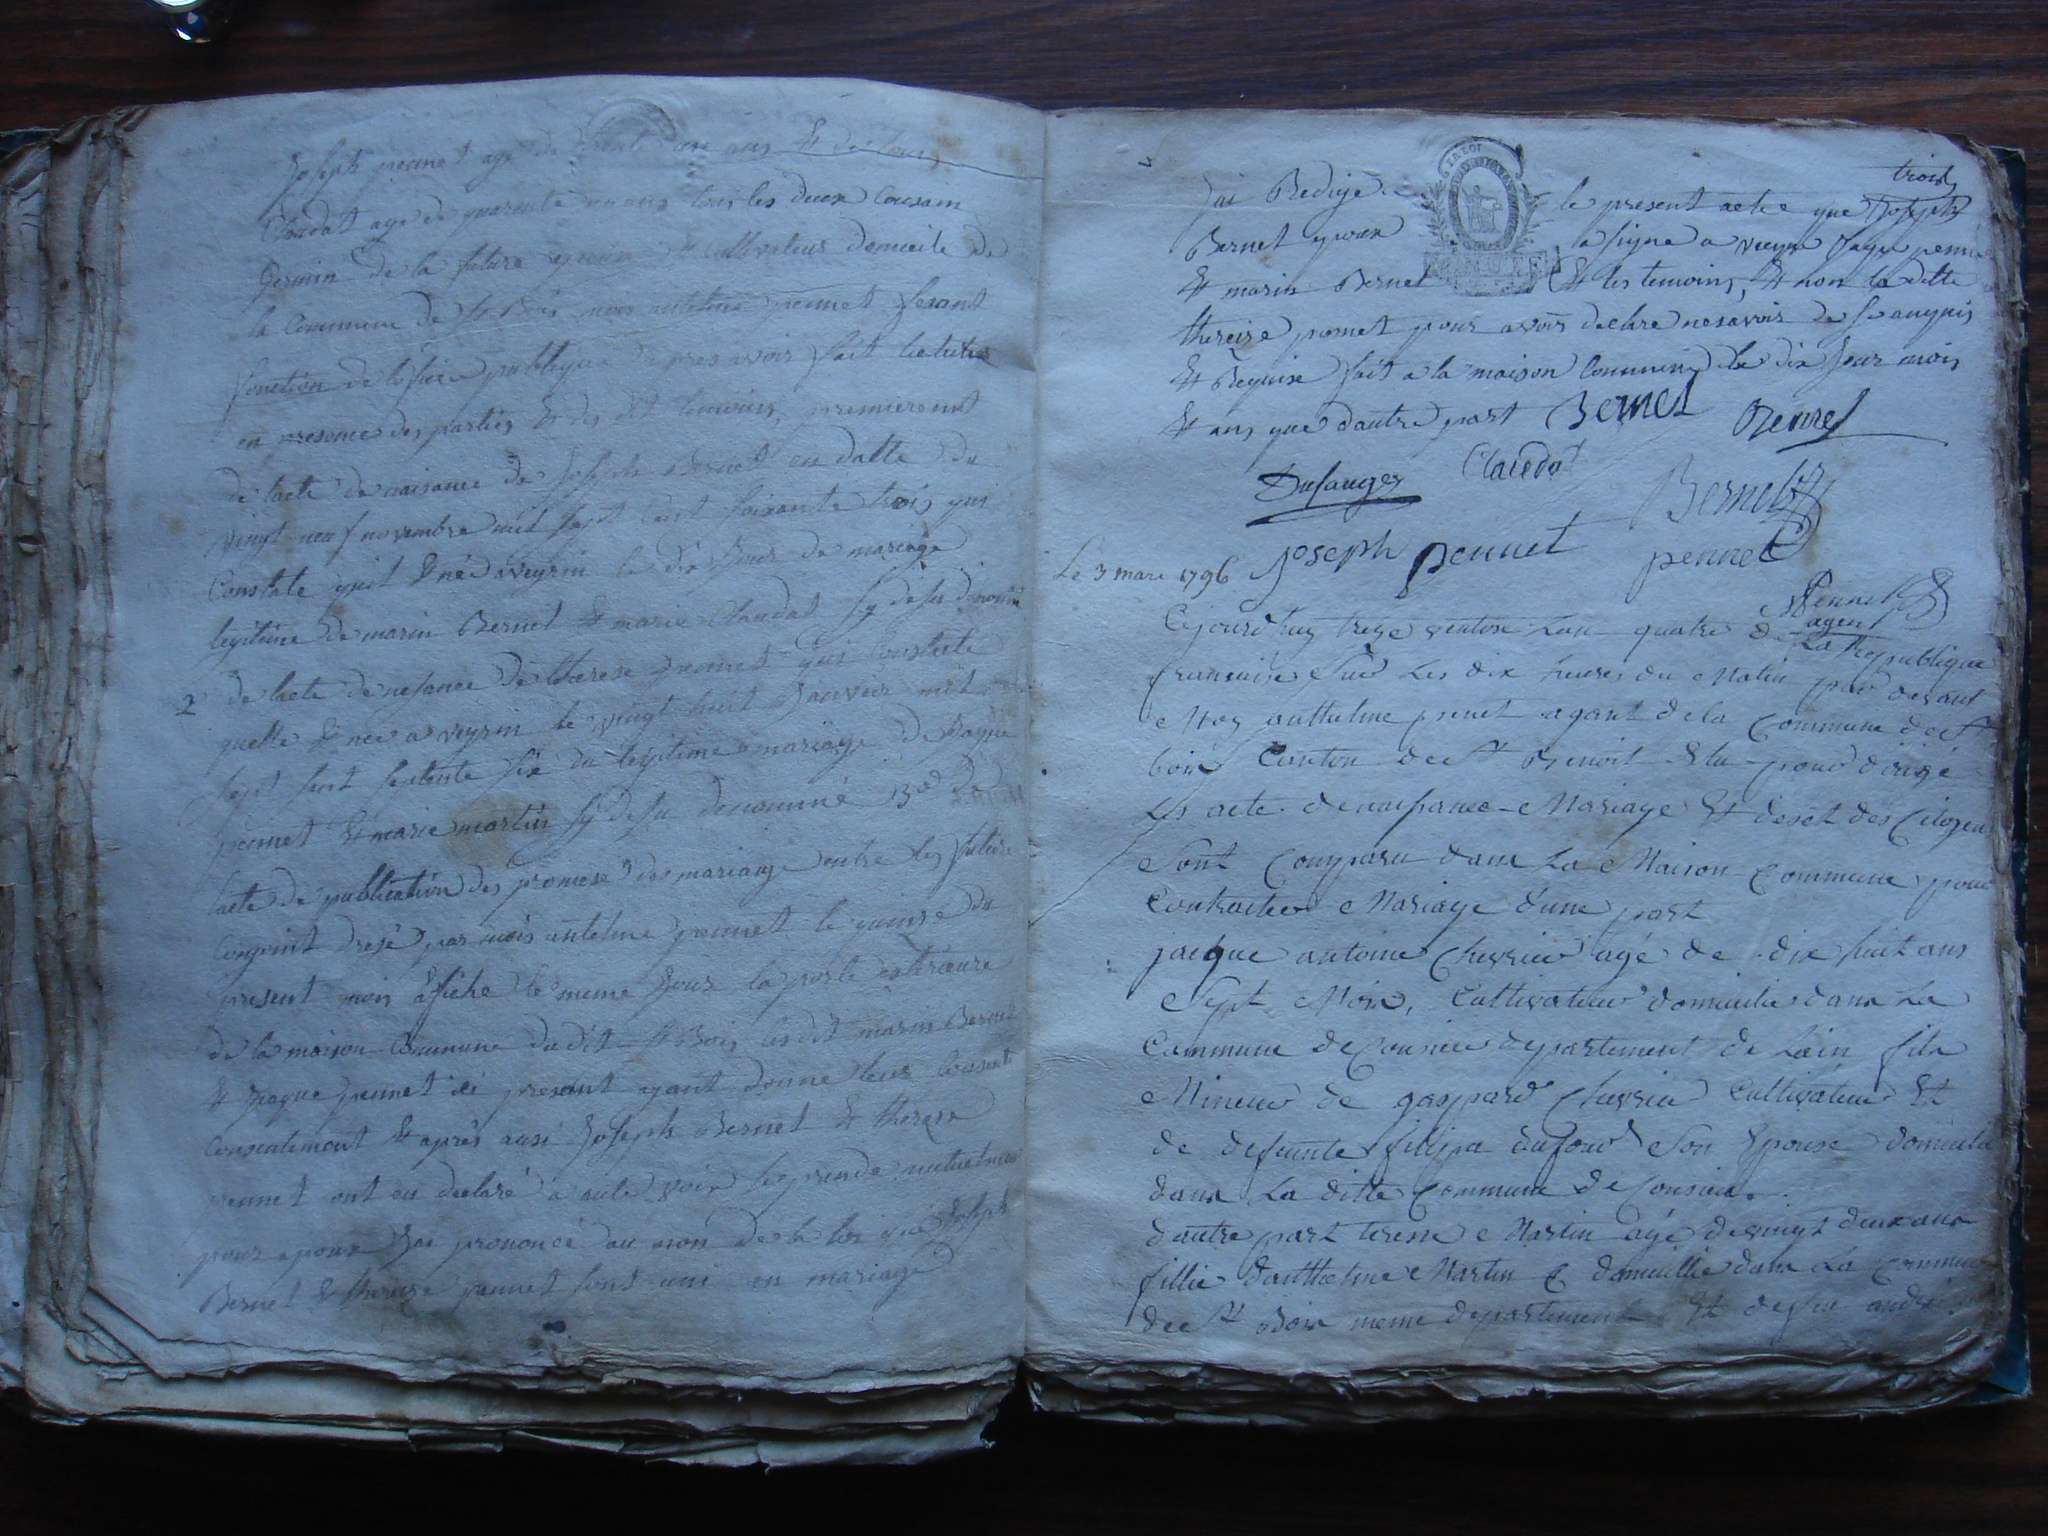 Joseph pennet agé de trente ans &
Claudat age de quarante ans tous les deux Cousain
Germin de la future epouse & Cultivateur domicile de
la Commune de St Bois nous anthelme pennet fesant
fonction de lofficie publique apres avoir fait lecture
en presence des parties & des dit temoins, premierement
de lacte de naisance de Joseph Bernet en datte du
vingt neuf novembre mil sept cent soixante trois qui
Constate quil & né a veyrin le dit Jour de mariage
legitime de marin Bernet & marie Claudat sy desu denomé
2 de lacte de nesance de therese pennet qui Constate
quelle & née a veyrin le vingt huit Janvier mil
sept sent septente six du legitime mariage de Jaque
pennet & marie martin sy desu denommé 3e de
lacte de publication des promese de mariage entre les future
Conjoint dresé par mois antelme pennet le quinse du
present mois afiche le meme Jour la porte exterieure
de la maison Commune du dit St Bois les dit marin Bernet
& Jaque pennet ici present ayant donne leur Consente
Consentement & après ausi Joseph Bernet & therese
pennet ont eu declaré a aute voix se prende mutuelmen
pour epoux Jai prononcé au nom de la loi que Joseph
Bernet & therese pennet sont uni en mariage
trois
Jai Redigé le present acte que Joseph
Bernet epoux a signe a veyrin Jaque penne
& marin Bernet & les temoins, & non la ditte
thereise pennet pour avoir declare ne savoir de se anquis
& Requise fait a la maison Commune le dix Jour mois
& ans que dautre part Bernet Bernet
LA LOI
Dufanges Claudat Bernet
Le 3 mars 1796 Joseph pennet pennet
Pennet
agent
Cejourdhuy treze ventose Lan quatre de La Republique
francaise sur Les dix heures du Matin par devant
Moy anthelme penet agant de la Commune de St
bois Canton de St Benoit Elu pour dirigé
Les acte de naissance Mariage Et deset des Citoyen
Sont Comparu dans La Maison Commune pour
Contracter Mariage d'une part
jacque antoine Chevrier agé de dix huit ans
Sept Mois, Cultivateur domicilié dans La
Commune de Consieu departement de Lain fils
Mineur de gaspard Chevrier Cultivateur Et
de defeunte filipa dufour Son Epouse domicilié
dans La ditte Commune de Consieu.
dautre part terese Martin agé de vingt deux ans
fillie danthelme Martin domicillié dans La Commune
de St Bois meme departement Et de feu andré